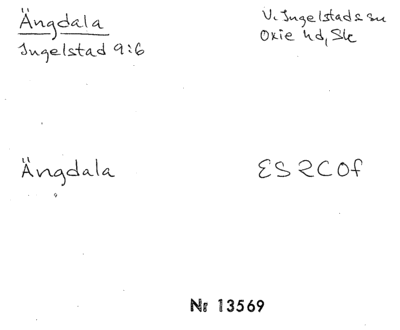 Ängdala
Ingelstad 9:6
V. Ingelstads sn
Oxie hd, Sk
Ängdala
ES2C0f
Nr 13569